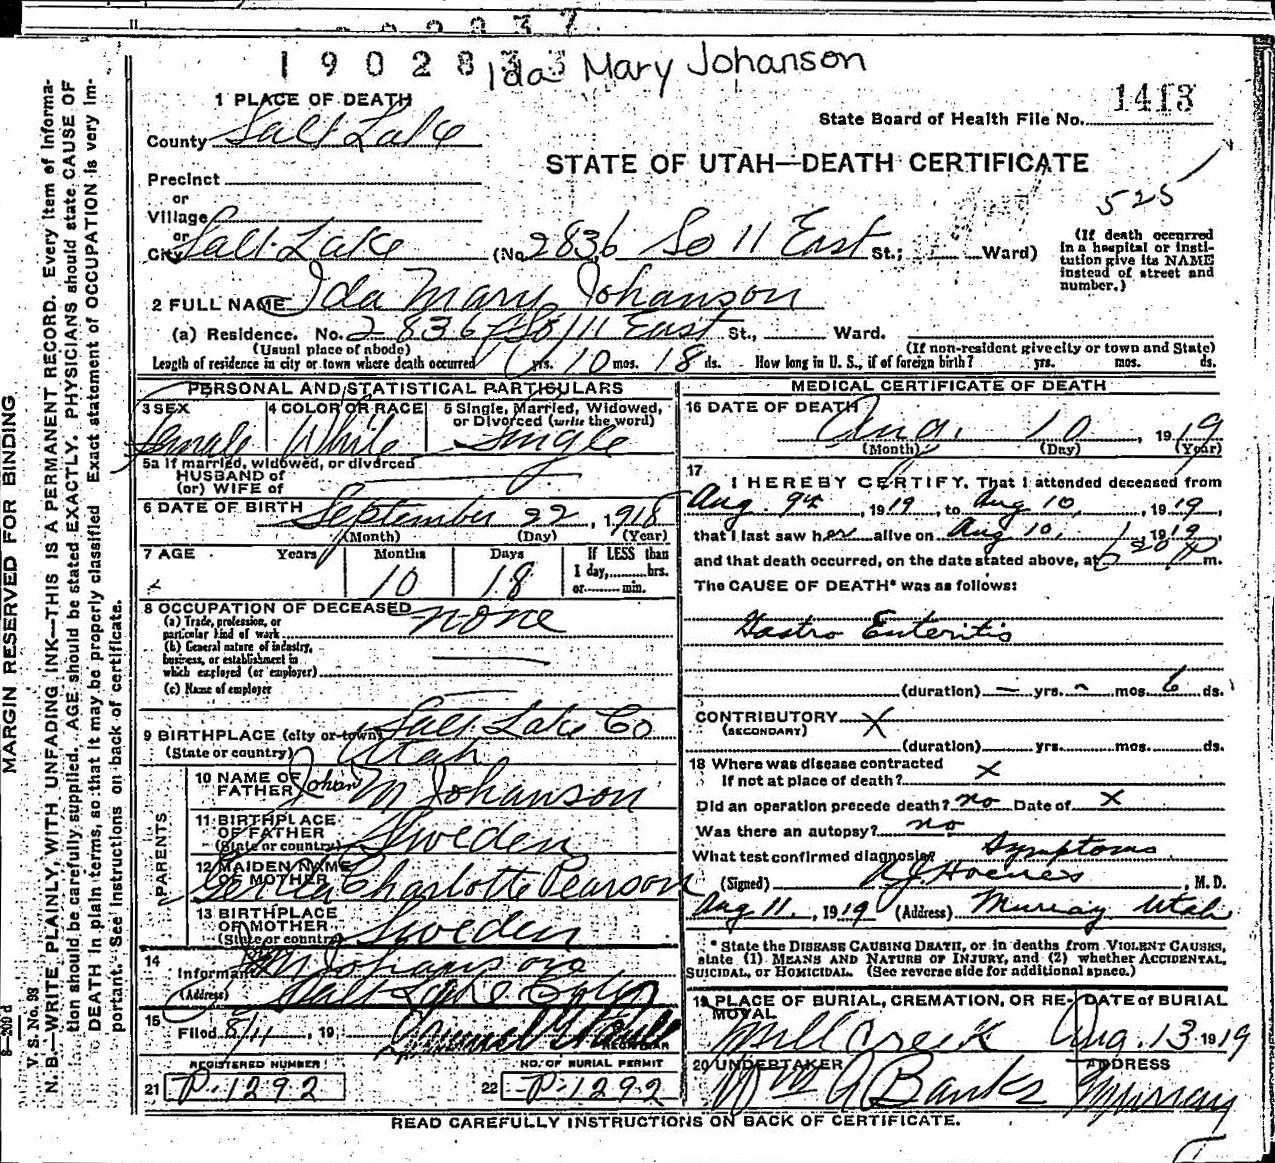 1902833
Ida Mary Johanson
1 PLACE OF DEATH
1413
State Board of Health File No.
County Salt Lake
STATE OF UTAH—DEATH CERTIFICATE
Precinct
or
Village
525
or
City Salt Lake (No. 2836 So 11 East St.; Ward)
(If death occurred in a hospital or institution give its NAME instead of street and number.)
2 FULL NAME Ida Mary Johanson
(a) Residence. No. 2836 So 11 East St., Ward.
(Usual place of abode) (If non-resident give city or town and State)
Length of residence in city or town where death occurred yrs. 10 mos. 18 ds. How long in U. S., if of foreign birth? yrs. mos. ds.
PERSONAL AND STATISTICAL PARTICULARS
3 SEX 4 COLOR OR RACE 5 Single, Married, Widowed, or Divorced (write the word)
Female White Single
5a If married, widowed, or divorced
HUSBAND of
(or) WIFE of
6 DATE OF BIRTH September 22, 1918
(Month) (Day) (Year)
7 AGE Years Months Days If LESS than
10 18 1 day,........hrs.
or........min.
8 OCCUPATION OF DECEASED none
(a) Trade, profession, or
particular kind of work
(b) General nature of industry,
business, or establishment in
which employed (or employer)
(c) Name of employer
9 BIRTHPLACE (city or town) Salt Lake Co
(State or country) Utah
PARENTS
10 NAME OF FATHER Johan M Johanson
11 BIRTHPLACE OF FATHER (State or country) Sweden
12 MAIDEN NAME OF MOTHER Charlotte Pearson
13 BIRTHPLACE OF MOTHER (State or country) Sweden
14 Informant J M Johanson
(Address) Salt Lake City
15 Filed 8/11, 19
REGISTRAR
REGISTERED NUMBER NO. OF BURIAL PERMIT
21 P-1292 22 P-1292
MEDICAL CERTIFICATE OF DEATH
16 DATE OF DEATH
Aug. 10, 1919
(Month) (Day) (Year)
17 I HEREBY CERTIFY, That I attended deceased from
Aug. 9th, 1919, to Aug 10, 1919,
that I last saw her alive on Aug 10, 1919,
and that death occurred, on the date stated above, at m.
The CAUSE OF DEATH* was as follows:
Gastro Enteritis
(duration) — yrs. - mos. 6 ds.
CONTRIBUTORY X
(SECONDARY)
(duration) yrs. mos. ds.
18 Where was disease contracted
If not at place of death? X
Did an operation precede death? no Date of X
Was there an autopsy? no
What test confirmed diagnosis? Symptoms
(Signed) , M.D.
Aug 11, 1919 (Address) Murray Utah
* State the DISEASE CAUSING DEATH, or in deaths from VIOLENT CAUSES,
state (1) MEANS AND NATURE OF INJURY, and (2) whether ACCIDENTAL,
SUICIDAL, or HOMICIDAL. (See reverse side for additional space.)
19 PLACE OF BURIAL, CREMATION, OR REMOVAL DATE of BURIAL
Mill Creek Aug. 13 1919
20 UNDERTAKER ADDRESS
Wm A Banks Murray
READ CAREFULLY INSTRUCTIONS ON BACK OF CERTIFICATE.
MARGIN RESERVED FOR BINDING
V. S. No. 98
N. B.—WRITE PLAINLY, WITH UNFADING INK—THIS IS A PERMANENT RECORD. Every item of informa-
tion should be carefully supplied. AGE should be stated EXACTLY. PHYSICIANS should state CAUSE OF
DEATH in plain terms, so that it may be properly classified. Exact statement of OCCUPATION is very im-
portant. See instructions on back of certificate.